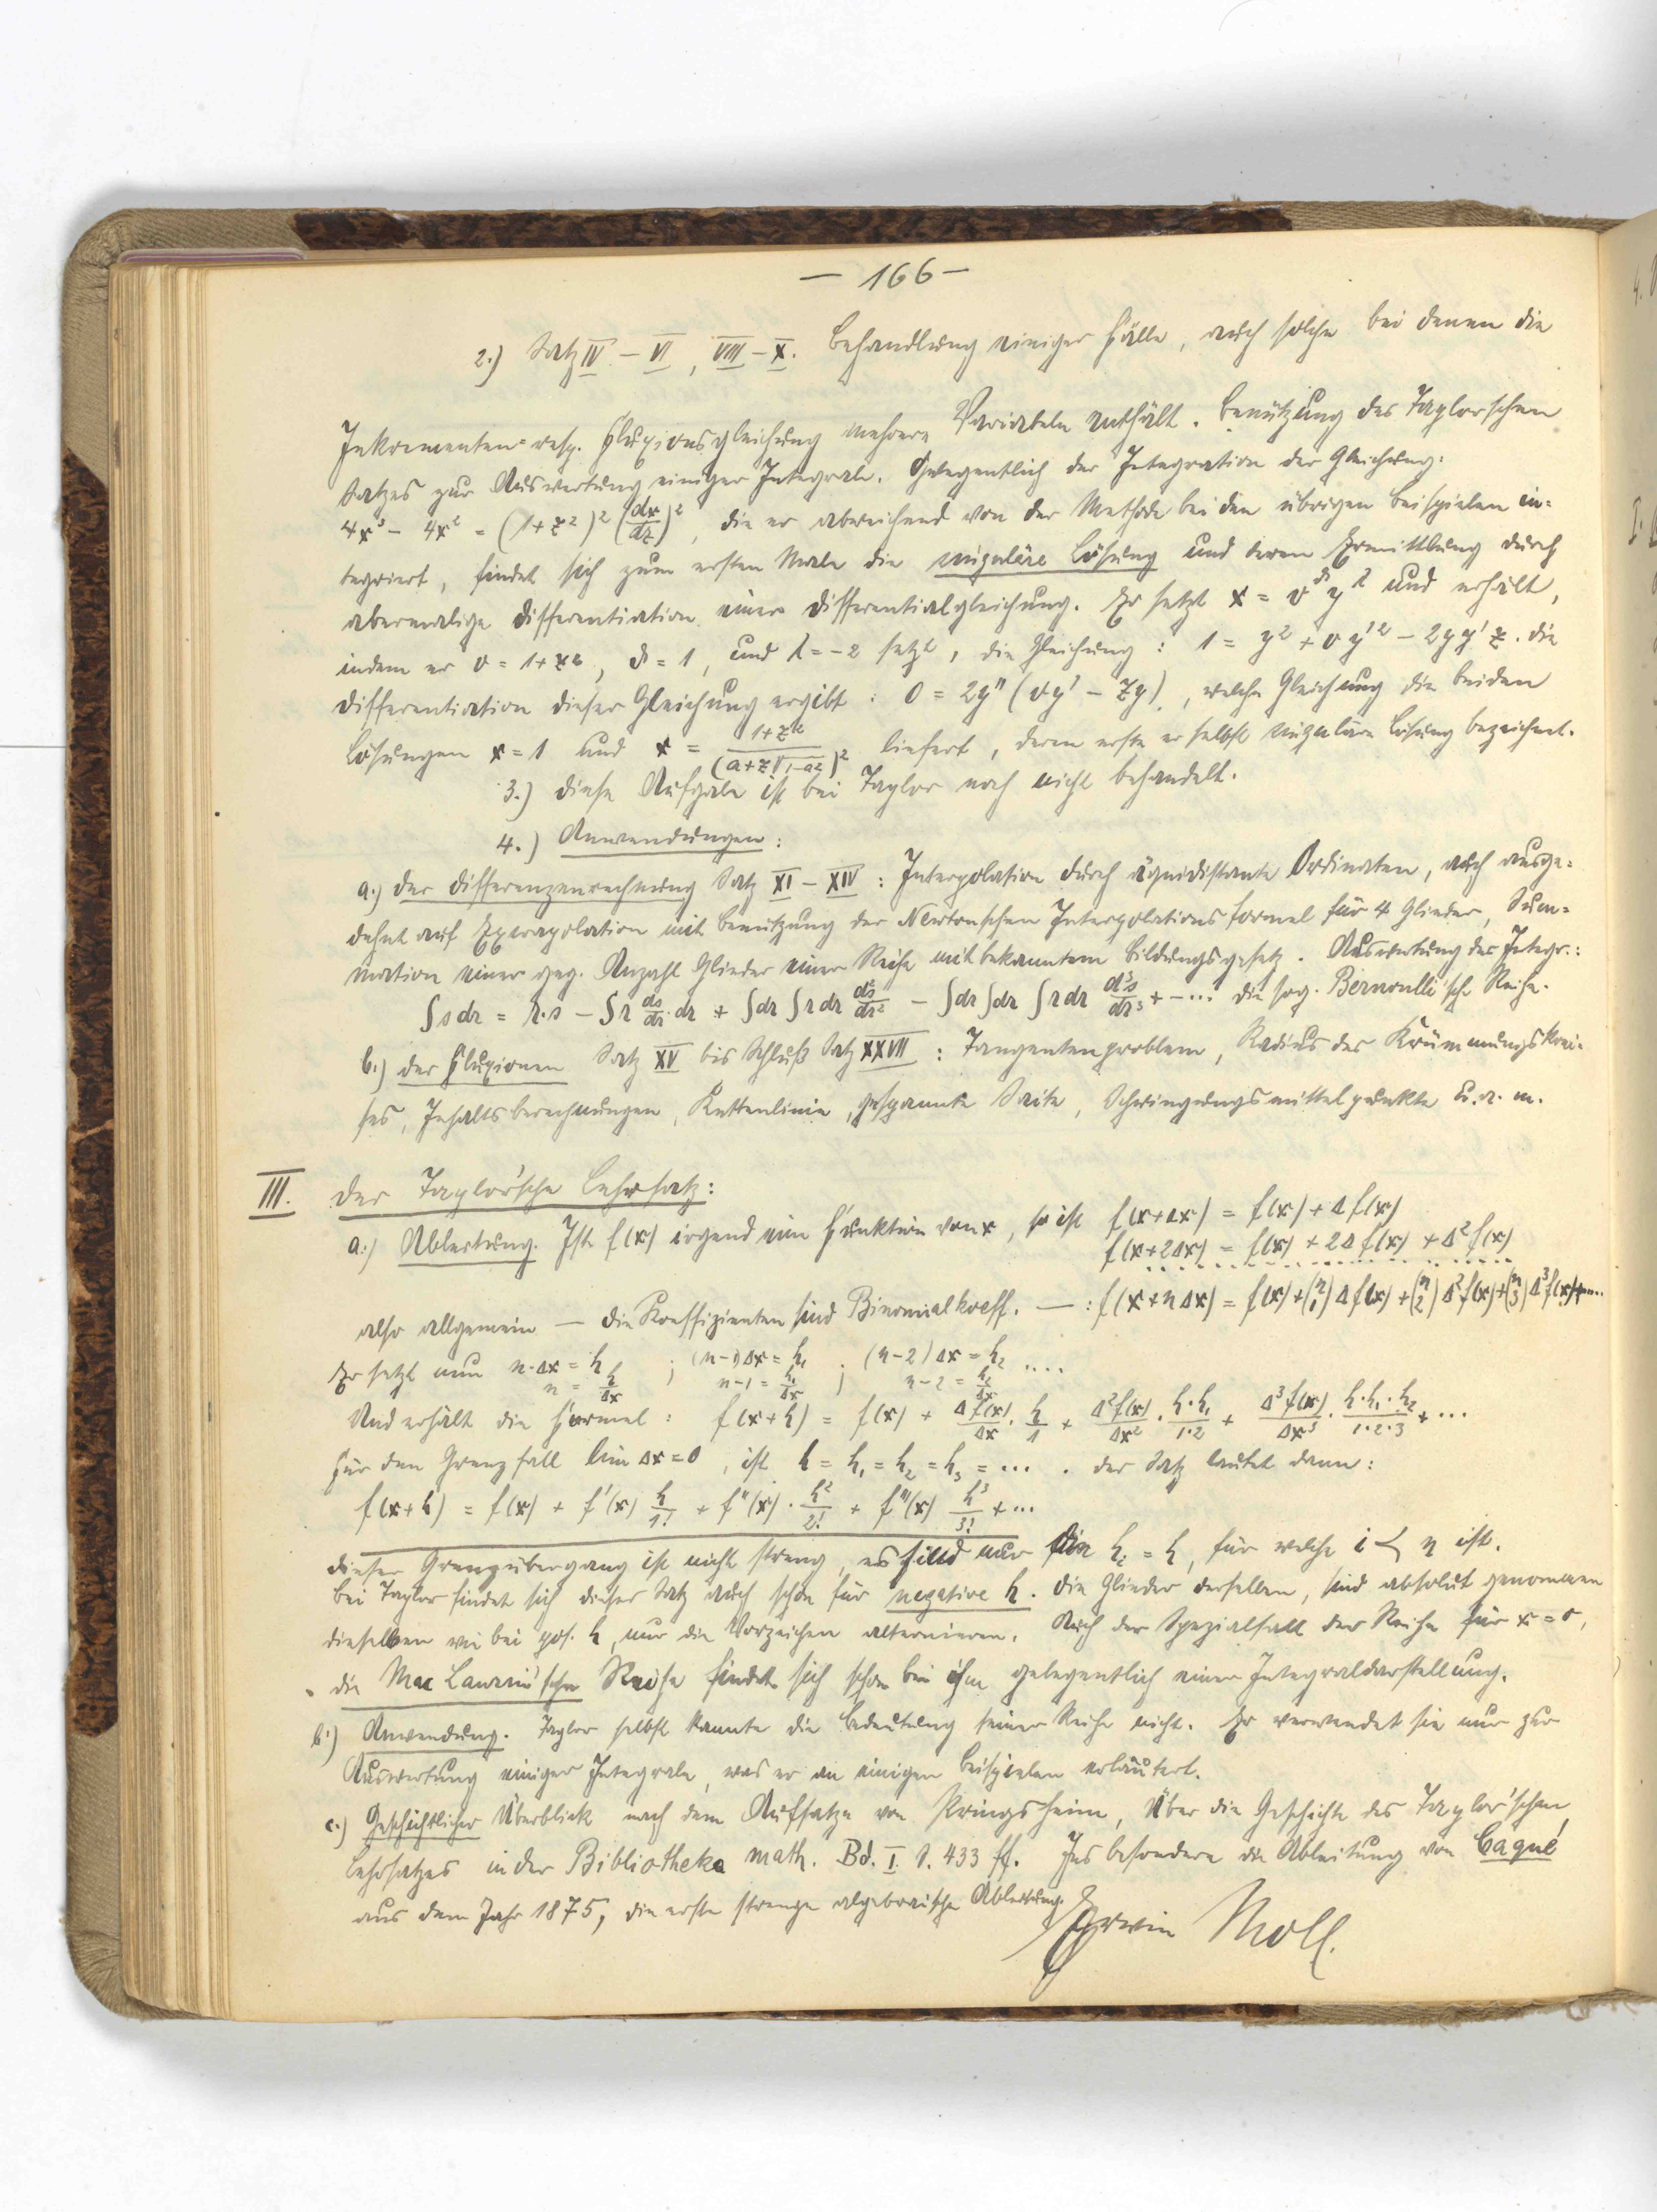 — 166 —
2.) Satz IV – VI, VIII – X. Behandlung einiger Fälle, auch solche bei denen die
Inkrementen- resp. Fluxionsgleichung mehrere Variabeln enthält. Benützung des Taylorschen
Satzes zur Auswertung einiger Integrale. Gelegentlich der Integration der Gleichung:
4x³ – 4x² = (1+z²)² (dx/dz)², die er abweichend von der Methode bei den übrigen Beispielen in-
tegriert, findet sich zum ersten Male die singuläre Lösung und deren Ermittlung durch
abermalige Differentiation einer Differentialgleichung. Er setzt x = v^ϑ y^λ und erhält,
indem er v = 1+z², ϑ = 1, und λ = –2 setzt, die Gleichung: 1 = y² + v y'² – 2yy'z. Die
Differentiation dieser Gleichung ergibt: 0 = 2y'' (vy' – zy), welche Gleichung die beiden
Lösungen x = 1 und x = (1+z²)/(a+z√1–a²)² liefert, deren erste er selbst singuläre Lösung bezeichnet.
3.) Diese Aufgabe ist bei Taylor noch nicht behandelt.
4.) Anwendungen:
a.) der Differenzenrechnung Satz XI – XIV: Interpolation durch äquidistante Ordinaten, auch ausge-
dehnt auf Extrapolation mit Benützung der Newtonschen Interpolationsformel für 4 Glieder, Sum-
mation einer geg. Anzahl Glieder einer Reihe mit bekanntem Bildungsgesetz. Auswertung des Integr.:
∫s dr = r·s – ∫r ds/dr dr + ∫dr ∫r dr d²s/dr² – ∫dr ∫dr ∫r dr d³s/dr³ + – ... die sog. Bernoulli'sche Reihe.
b.) der Fluxionen Satz XV bis Schluß Satz XXVII: Tangentenproblem, Radius des Krümmungskrei-
ses, Inhaltsberechnungen, Kettenlinie, gespannte Saite, Schwingungsmittelpunkte u. a. m.
III. Der Taylor'sche Lehrsatz:
a.) Ableitung. Ist f(x) irgend eine Funktion von x, so ist f(x+Δx) = f(x) + Δf(x)
f(x+2Δx) = f(x) + 2Δf(x) + Δ²f(x)
also allgemein — die Koeffizienten sind Binomialkoeff. — : f(x+nΔx) = f(x) + (n 1) Δf(x) + (n 2) Δ²f(x) + (n 3) Δ³f(x) + ....
Er setzt nun n·Δx = h ; (n–1)Δx = h₁ ; (n–2)Δx = h₂ ....
n = h/Δx n–1 = h₁/Δx n–2 = h₂/Δx
Und erhält die Formel: f(x+h) = f(x) + Δf(x)/Δx · h/1 + Δ²f(x)/Δx² · h·h₁/1·2 + Δ³f(x)/Δx³ · h·h₁·h₂/1·2·3 + ...
Für den Grenzfall lim Δx = 0, ist h = h₁ = h₂ = h₃ = .... Der Satz lautet dann:
f(x+h) = f(x) + f'(x) h/1! + f''(x) · h²/2! + f'''(x) h³/3! + ...
Dieser Grenzübergang ist nicht streng, es sind nur die hᵢ = h, für welche i < n ist.
Bei Taylor findet sich dieser Satz auch schon für negative h. Die Glieder derselben, sind absolut genommen
dieselben wie bei pos. h, nur die Vorzeichen alternieren. Auch der Spezialfall der Reihe für x = 0,
die Mac Laurin'sche Reihe findet sich schon bei ihm gelegentlich einer Integraldarstellung.
b.) Anwendung. Taylor selbst kannte die Bedeutung seiner Reihe nicht. Er verwendet sie nur zur
Auswertung einiger Integrale, was er an einigen Beispielen erläutert.
c.) Geschichtlicher Überblick nach dem Aufsatze von Pringsheim, Über die Geschichte des Taylor'schen
Lehrsatzes in der Bibliotheka math. Bd. I. S. 433 ff. Insbesondere die Ableitung von Caqué
aus dem Jahr 1875, die erste strenge algebraische Ableitung.
Erwin Moll.